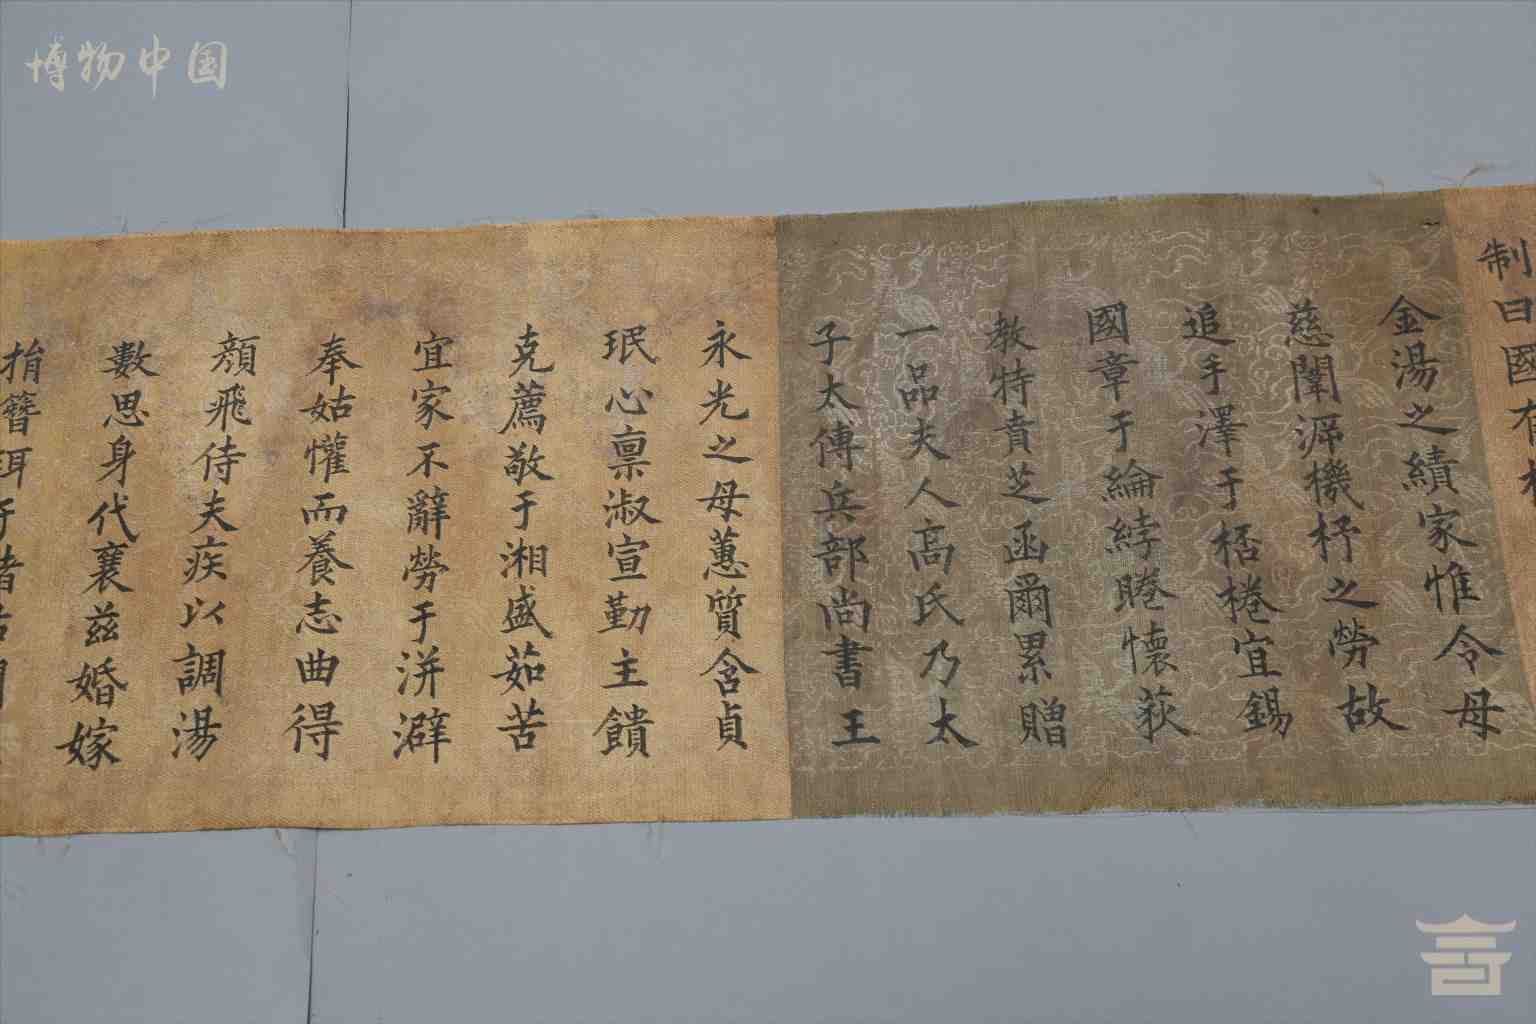 博物中国
制曰國有
金湯之績家惟令母
慈闈溯機杼之勞故
追手澤于桮棬宜錫
國章于綸綍睠懷荻
教特賁芝函爾累贈
一品夫人高氏乃太
子太傅兵部尚書王
永光之母蕙質含貞
珉心稟淑宣勤主饋
克薦敬于湘盛茹苦
宜家不辭勞于洴澼
奉姑懽而養志曲得
顏飛侍夫疾以調湯
數思身代襄茲婚嫁
捐簪珥于